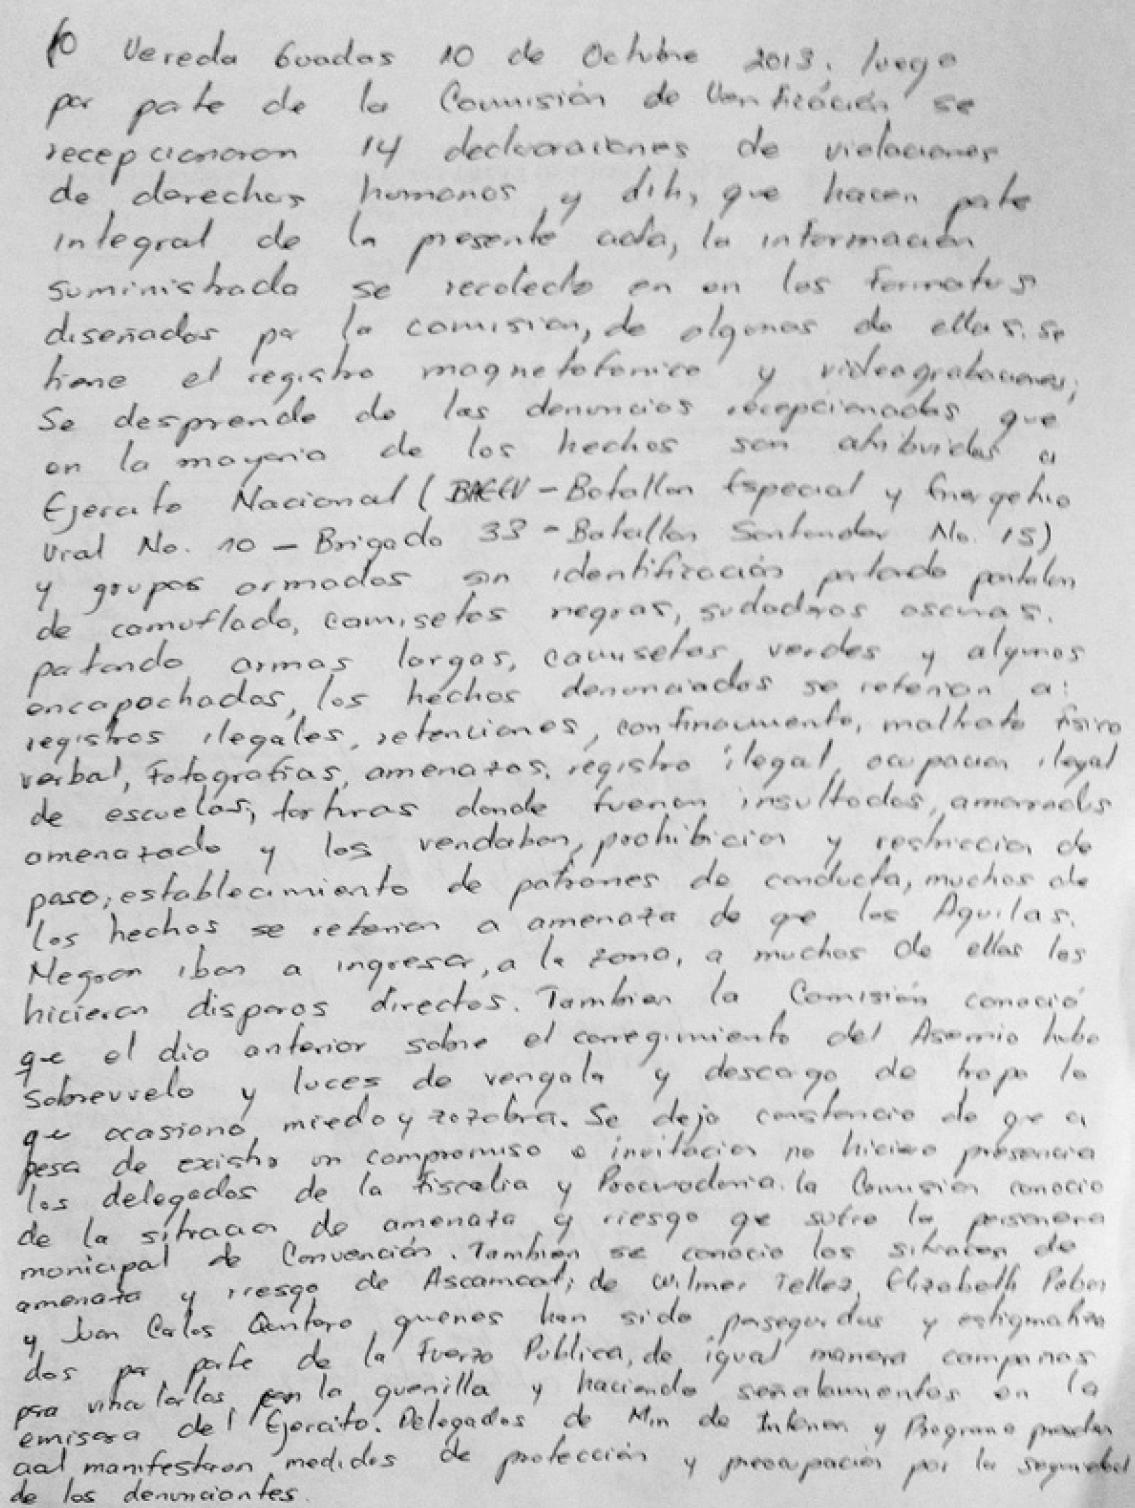 10 Vereda Guadas 10 de Octubre 2013. luego
por parte de la Comisión de Verificación se
recepcionaron 14 declaraciones de violaciones
de derechos humanos y dih, que hacen parte
integral de la presente acta, la información
suministrada se recolecto en en los formatos
diseñados por la comision, de algunas de ellas se
tiene el registro magnetofonico y videograbaciones;
Se desprende de las denuncias recepcionadas que
en la mayoria de los hechos son atribuidas a
Ejercito Nacional ( - Batallon Especial y Energetico
Vial No. 10 - Brigada 33 - Batallon Santander No. 15)
y grupos armados sin identificación portando pantalon
de camuflado, camisetas negras, sudaderas oscuras.
portando armas largas, camisetas verdes y algunos
encapochados, los hechos denunciados se referian a:
registros ilegales, retenciones, confinamiento, maltrato fisico
verbal, Fotografias, amenazas, registro ilegal, ocupacion ilegal
de escuelas, torturas donde fueron insultados, amarrados
amenazado y los vendaban, prohibicion y restriccion de
paso; establecimiento de patrones de conducta, muchos de
los hechos se referian a amenaza de qe las Aguilas.
Negran iban a ingresar, a la zona, a muchos de ellos les
hicieron disparos directos. Tambien la Comisión conoció
qe el dia anterior sobre el corregimiento del Aserrio hubo
sobrevuelo y luces de vengala y descargo de tropa lo
qe ocasiono miedo y zozobra. Se deja constancia de qe a
pesa de existir un compromiso e invitacion no hiciero presencia
los delegados de la fiscalia y Procuradoria. la Comision conocio
de la situacion de amenaza y riesgo qe sufre la personera
municipal de Convención. Tambien se conocio las situacion de
amenaza y riesgo de Ascamcat; de Wilmer Tellez, Elizabeth Pabon
y Juan Carlos Quintero quienes han sido perseguidos y estigmatiza
dos por parte de la Fuerza Publica, de igual manera campañas
para vincularlos con la guerilla y haciendo señalamientos en la
emisora del Ejercito. Delegados de Min de Interior y Programa presiden
cial manifestaron medidas de protección y preocupacion por la seguridad
de los denunciantes.